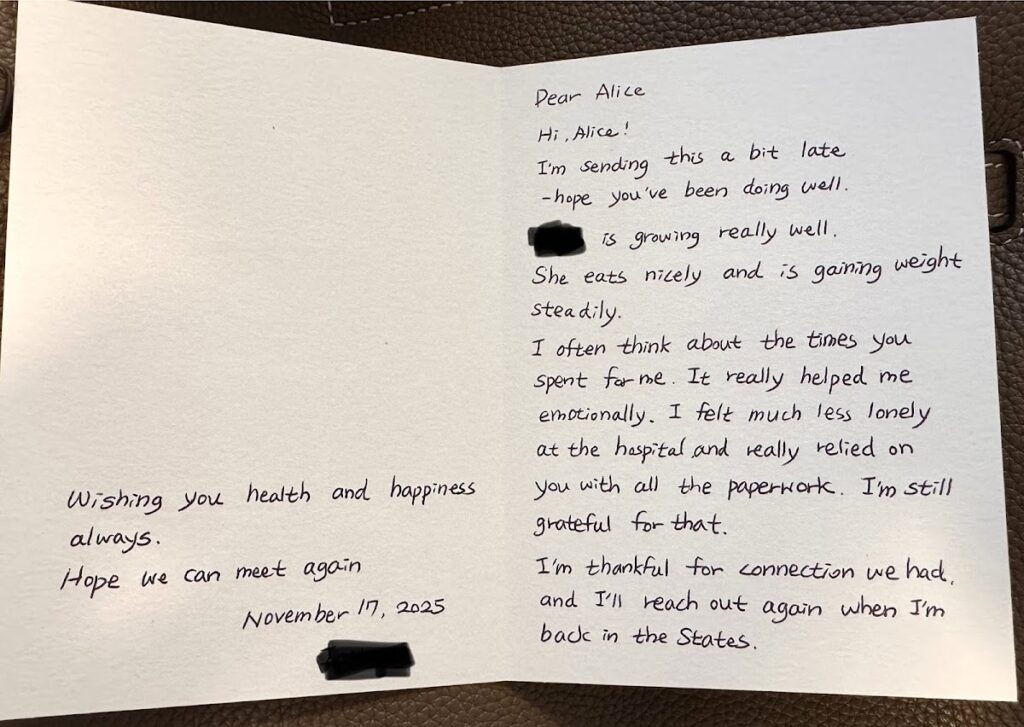 Dear Alice
Hi, Alice!
I'm sending this a bit late
-hope you've been doing well.
is growing really well.
She eats nicely and is gaining weight
steadily.
I often think about the times you
spent for me. It really helped me
emotionally. I felt much less lonely
at the hospital, and really relied on
you with all the paperwork. I'm still
grateful for that.
I'm thankful for connection we had,
and I'll reach out again when I'm
back in the States.
Wishing you health and happiness
always.
Hope we can meet again
November 17, 2025